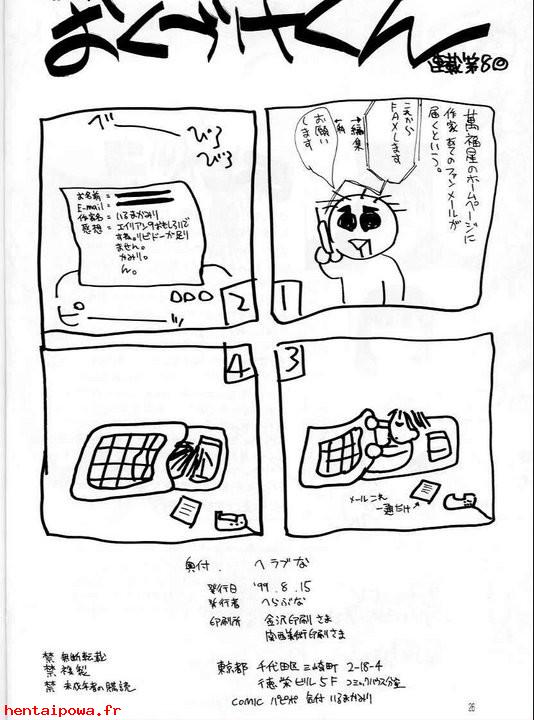 おくづけくん
連載第8回
萬福星のホームページに
作家あてのファンメールが
届くという。
これから
FAXします
←編集
私→
お願い
します
1
ピーーッ
ベーー
びろ
びろ
お名前 =
E-mail =
作家名 = いるまかみり
感想 = エイリアン9おもしろいで
すね。リビドーが足り
ません。
かみり。
ん。
2
3
メールこれ
一通だけ
4
奥付. へラブな
発行日 '99.8.15
発行者 へらぶな
印刷所 金沢印刷さま
関西美術印刷さま
禁 無断転載
禁 複製
禁 未成年者の購読
東京都 千代田区三崎町 2-18-4
徳栄ビル5F コミックハウス分室
COMIC パピポ 気付 いるまかみり
26
hentaipowa.fr